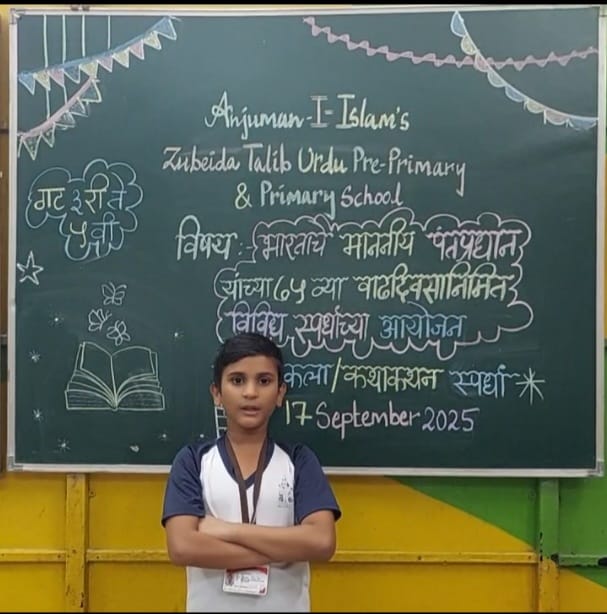 Anjuman-I-Islam's
Zubeida Talib Urdu Pre-Primary
& Primary School
गट ३री ते
५वी
विषय :- भारताचे माननीय पंतप्रधान
यांच्या ७५ व्या वाढदिवसानिमित
विविध स्पर्धाच्या आयोजन
कला/कथाकथन स्पर्धा
17 September 2025